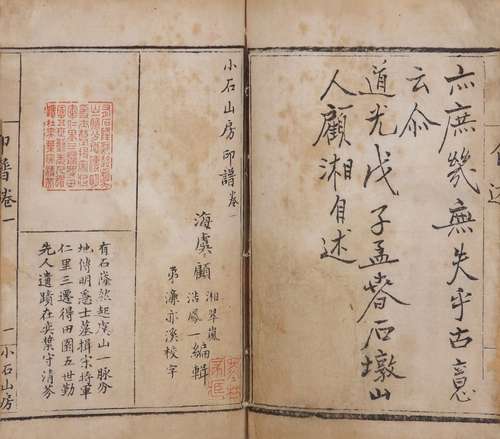 亦庶幾無失乎古意
云尒
道光戊子孟春石墩山
人顧湘自述
小石山房印譜卷一
海虞顧
湘翠嵐
浩鳳
編輯
弟濂亦溪校字
有石隆然起虞山一脈分
地傳明處士墓揖宋將軍
仁里三遷得田園五世勤
先人遺蹟在奕葉守清芬
印譜卷一
一
小石山房